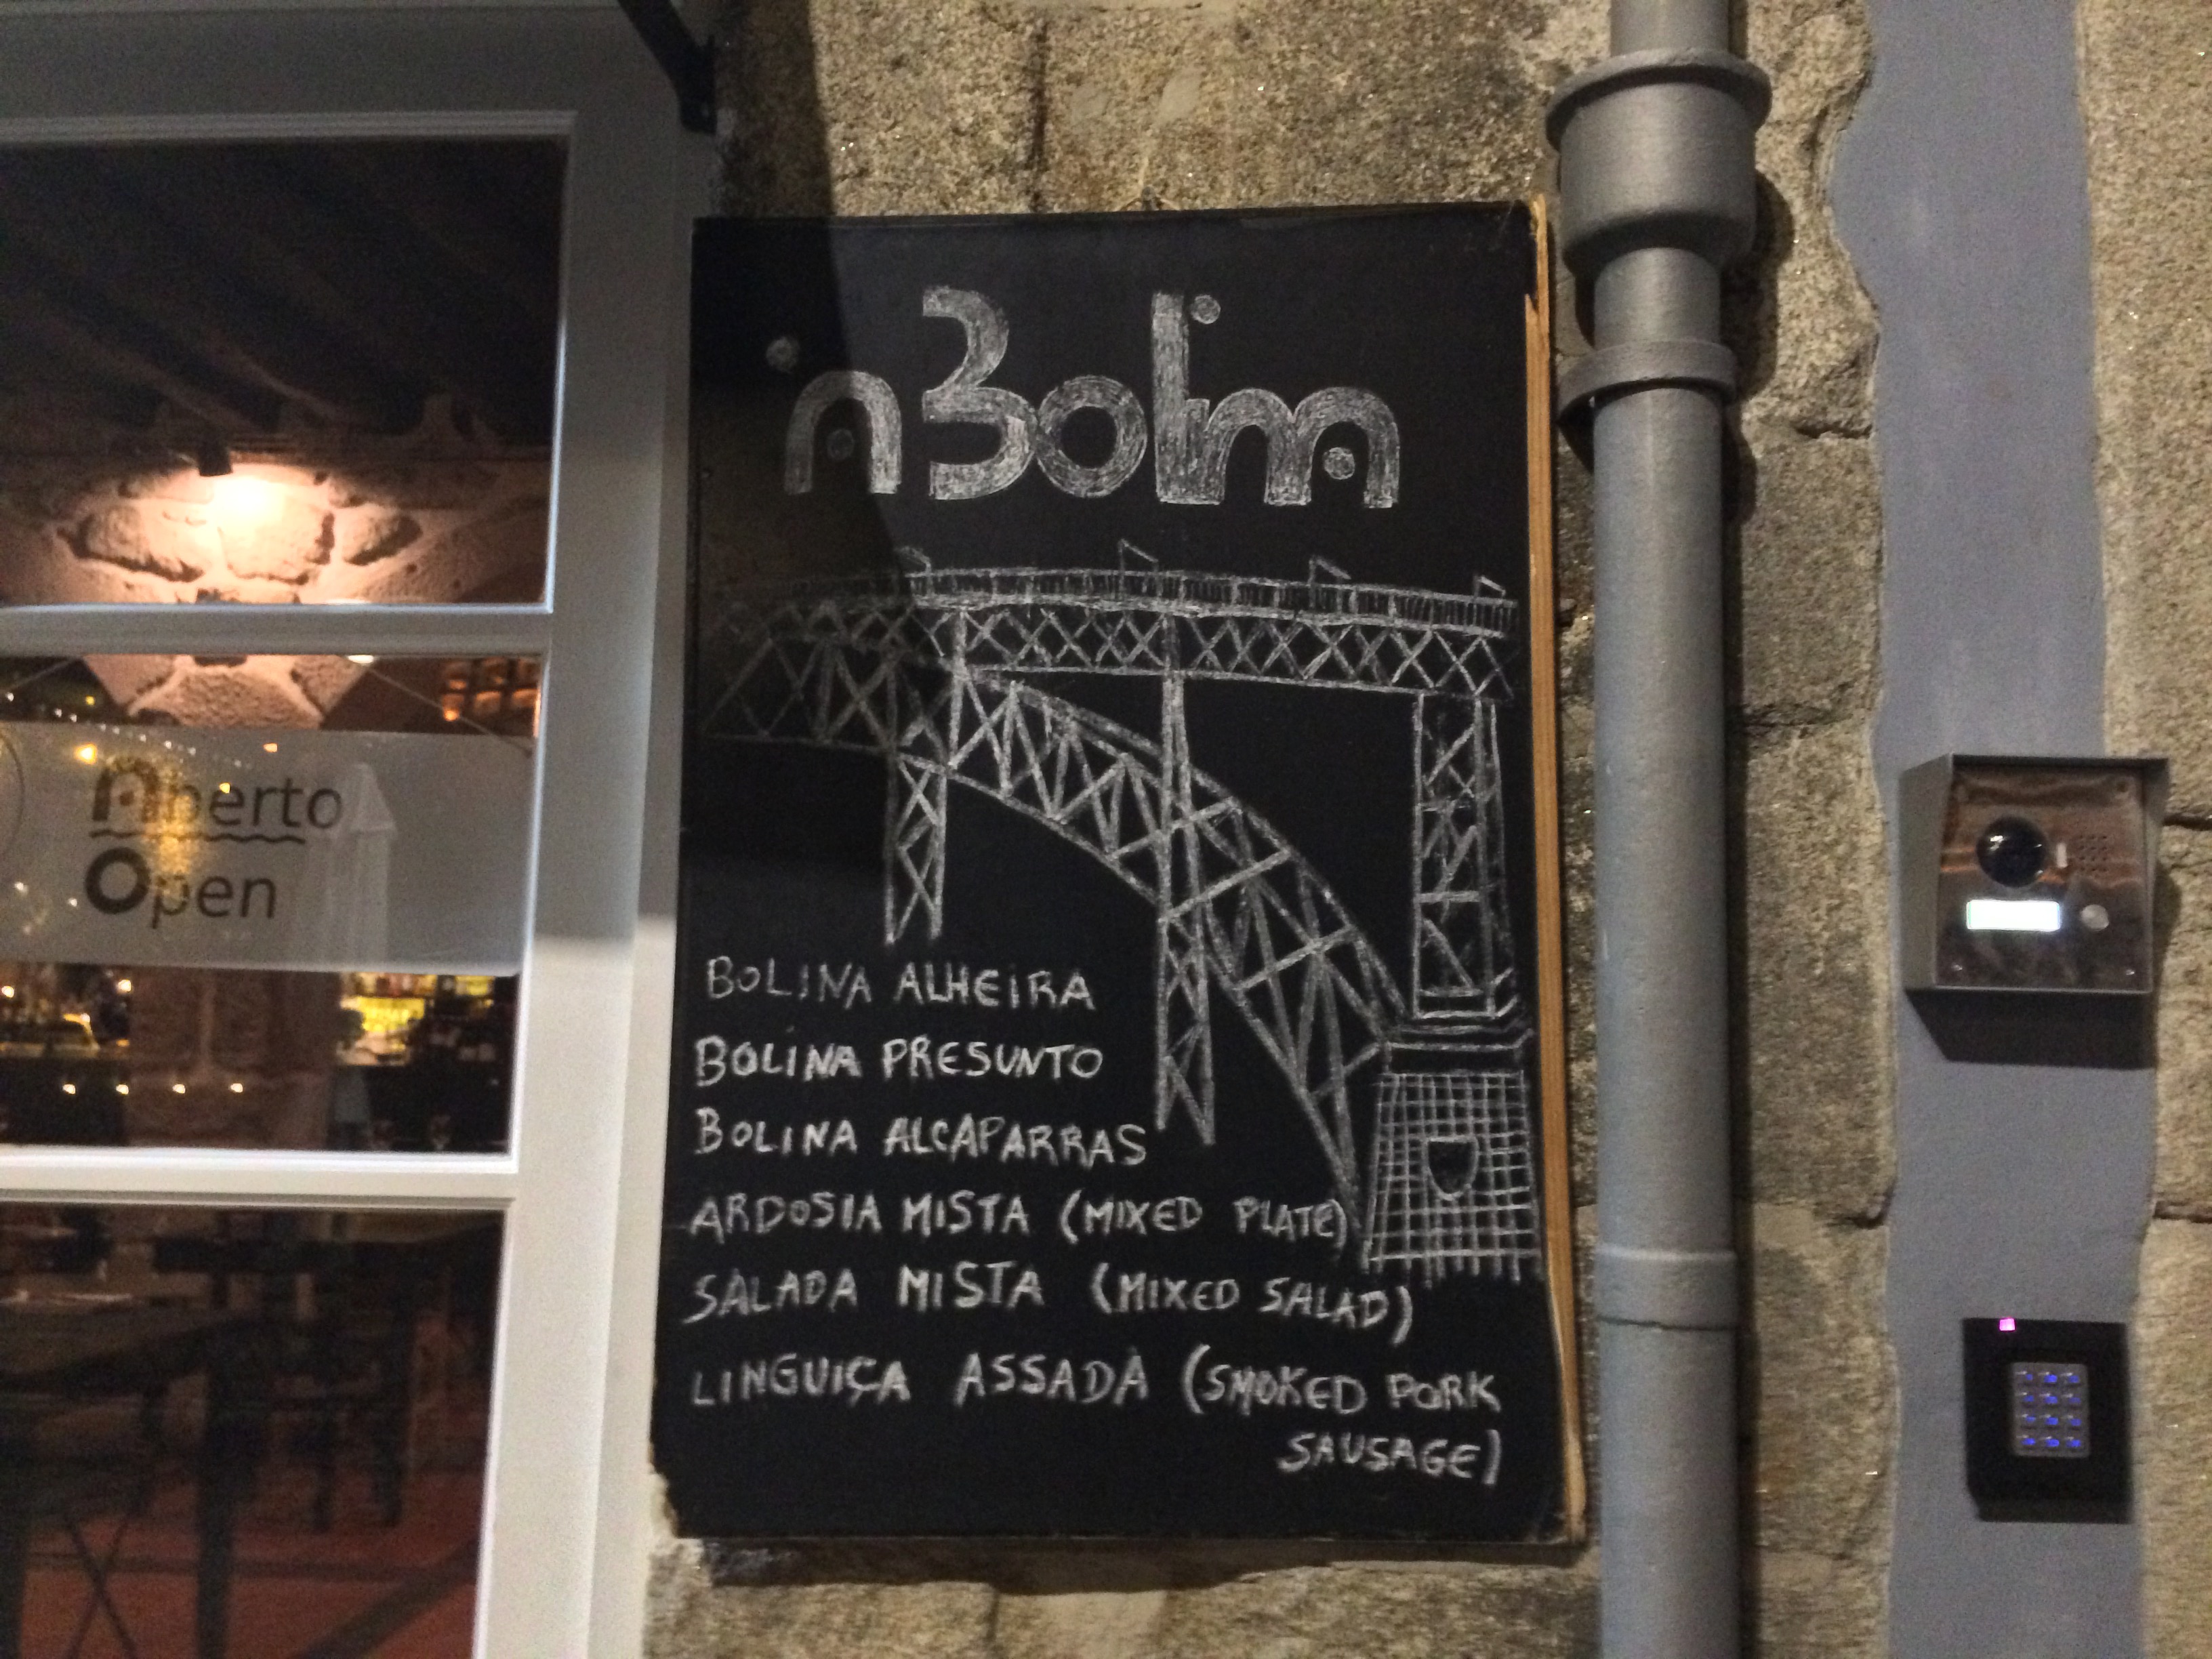 àBolina
Aberto
Open
BOLINA ALHEIRA
BOLINA PRESUNTO
BOLINA ALCAPARRAS
ARDOSIA MISTA (MIXED PLATE)
SALADA MISTA (MIXED SALAD)
LINGUIÇA ASSADA (SMOKED PORK
SAUSAGE)